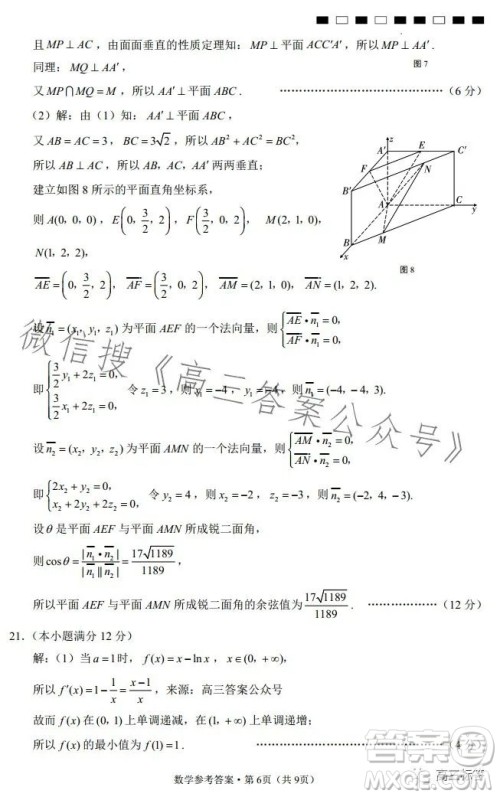 且 MP⊥AC，由面面垂直的性质定理知：MP⊥平面 ACC′A′，所以 MP⊥AA′.
图 7
同理：MQ⊥AA′，
又 MP∩MQ=M，所以 AA′⊥平面 ABC. ………………（6 分）
（2）解：由（1）知：AA′⊥平面 ABC，
又 AB=AC=3，BC=3√2，所以 AB²+AC²=BC²，
所以 AB⊥AC，所以 AB，AC，AA′ 两两垂直；
建立如图 8 所示的平面直角坐标系，
则 A(0, 0, 0)，E(0, 3/2, 2)，F(3/2, 0, 2)，M(2, 1, 0)，
N(1, 2, 2)，
z
A′ E C′
F N
B′
A C y
B M
x
图 8
AE=(0, 3/2, 2)，AF=(3/2, 0, 2)，AM=(2, 1, 0)，AN=(1, 2, 2).
设 n₁=(x₁, y₁, z₁) 为平面 AEF 的一个法向量，则 {AE·n₁=0, AF·n₁=0,
即 {3/2 y₁+2z₁=0, 3/2 x₁+2z₁=0, 令 z₁=3，则 x₁=−4，y₁=−4，则 n₁=(−4, −4, 3).
设 n₂=(x₂, y₂, z₂) 为平面 AMN 的一个法向量，则 {AM·n₂=0, AN·n₂=0,
即 {2x₂+y₂=0, x₂+2y₂+2z₂=0, 令 y₂=4，则 x₂=−2，z₂=−3，则 n₂=(−2, 4, −3).
设 θ 是平面 AEF 与平面 AMN 所成锐二面角，
则 cosθ=|n₁·n₂|/|n₁||n₂|=17√1189/1189，
所以平面 AEF 与平面 AMN 所成锐二面角的余弦值为 17√1189/1189. ………………（12 分）
21.（本小题满分 12 分）
解：（1）当 a=1 时，f(x)=x−ln x，x∈(0, +∞)，
所以 f′(x)=1−1/x=(x−1)/x，来源：高三答案公众号
故而 f(x) 在 (0, 1) 上单调递减，在 (1, +∞) 上单调递增，
所以 f(x) 的最小值为 f(1)=1. ………………（4 分）
数学参考答案·第 6页（共 9页）
微信搜《高三答案公众号》
答案圈